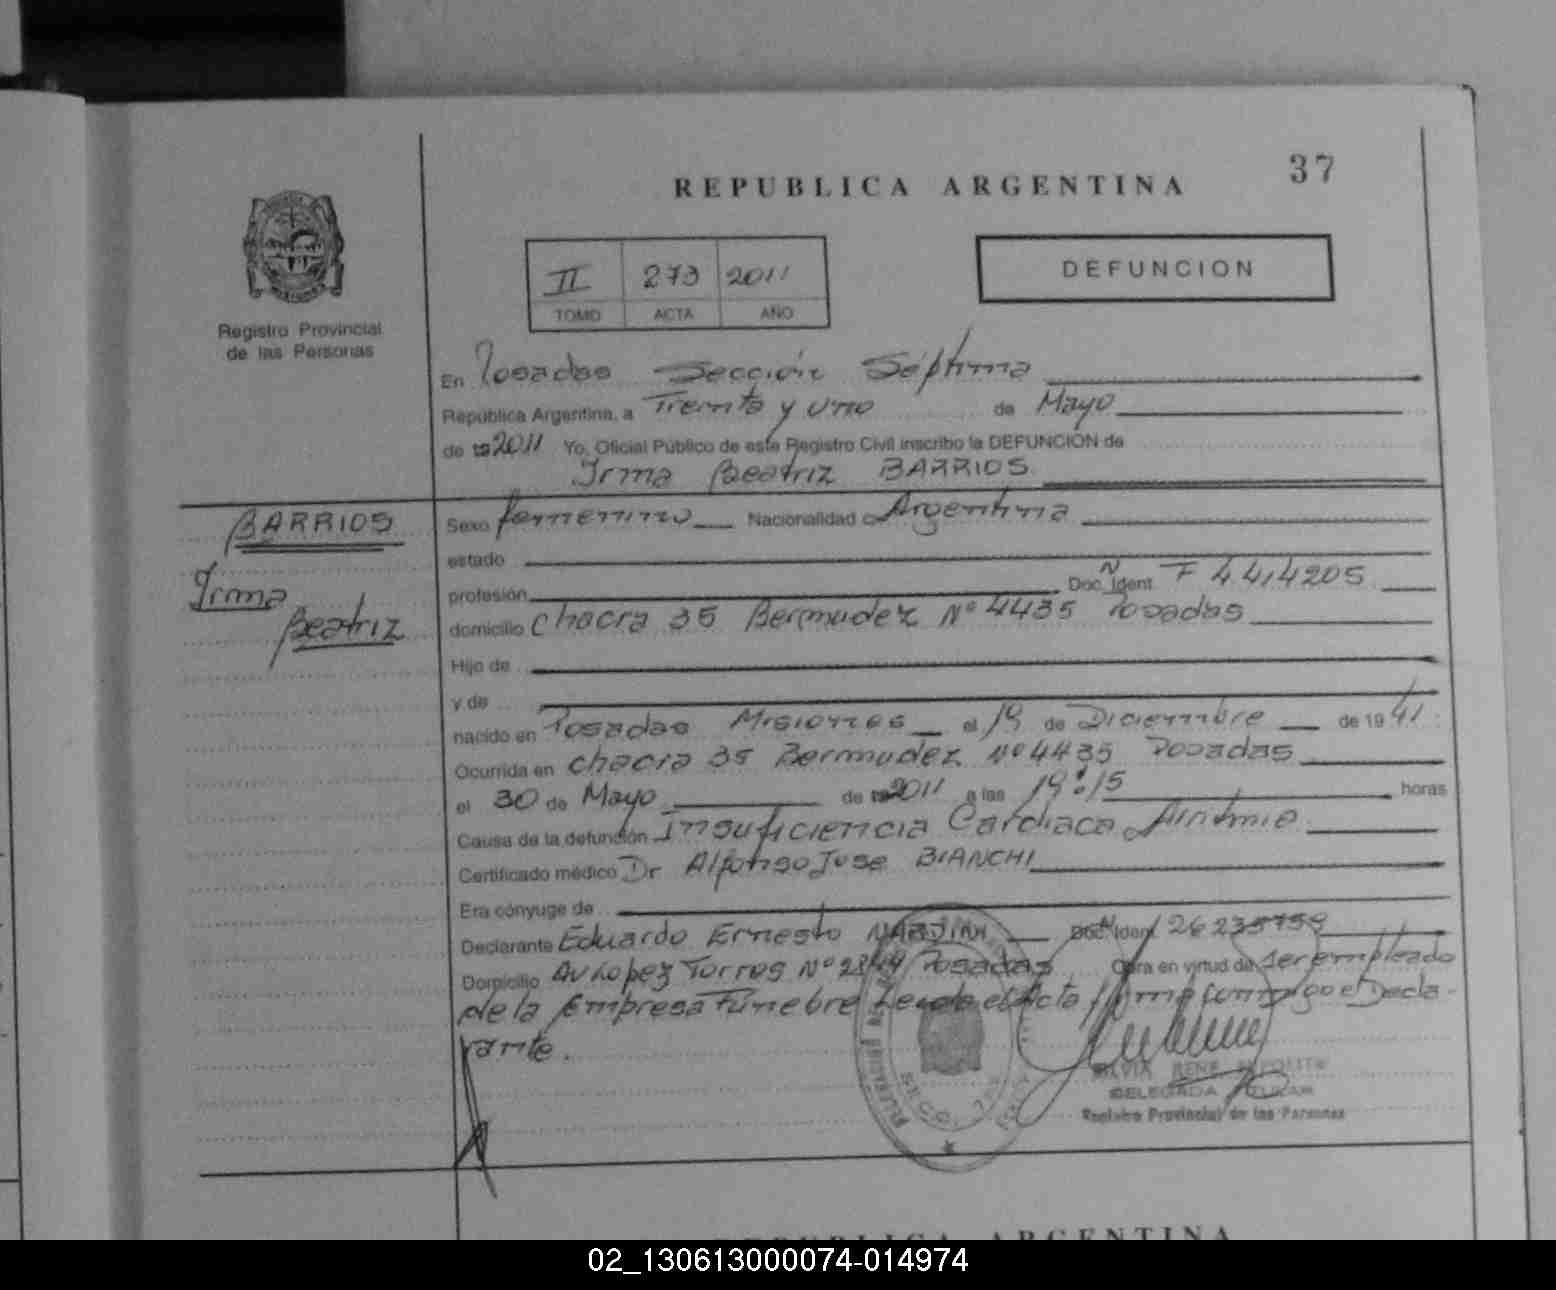 37
REPUBLICA ARGENTINA
Registro Provincial
de las Personas
II 273 2011
TOMO ACTA AÑO
DEFUNCION
En Posadas Sección Séptima
República Argentina, a Treinta y uno de Mayo
de 2011 Yo, Oficial Público de este Registro Civil inscribo la DEFUNCION de
Irma Beatriz BARRIOS
BARRIOS
Irma
Beatriz
Sexo femenino Nacionalidad Argentina
estado
profesión Doc. Ident. N F 4.414205
domicilio chacra 35 Bermudez Nº 4435 Posadas
Hijo de
y de
nacido en Posadas Misiones el 19 de Diciembre de 1941
Ocurrida en chacra 35 Bermudez Nº 4435 Posadas
el 30 de Mayo de 2011 a las 19:15 horas
Causa de la defunción Insuficiencia Cardiaca
Certificado médico Dr Alfonso Jose BIANCHI
Era cónyuge de
Declarante Eduardo Ernesto Doc. Ident. N 26235759
Domicilio Av Lopez Torres Nº Posadas Obra en virtud de ser empleado
de la Empresa Fúnebre Leida el Acta firma conmigo el Decla-
rante.
SECC. 7
SILVIA RENE HIPOLITO
DELEGADA TITULAR
Registro Provincial de las Personas
REPUBLICA ARGENTINA
02_130613000074-014974